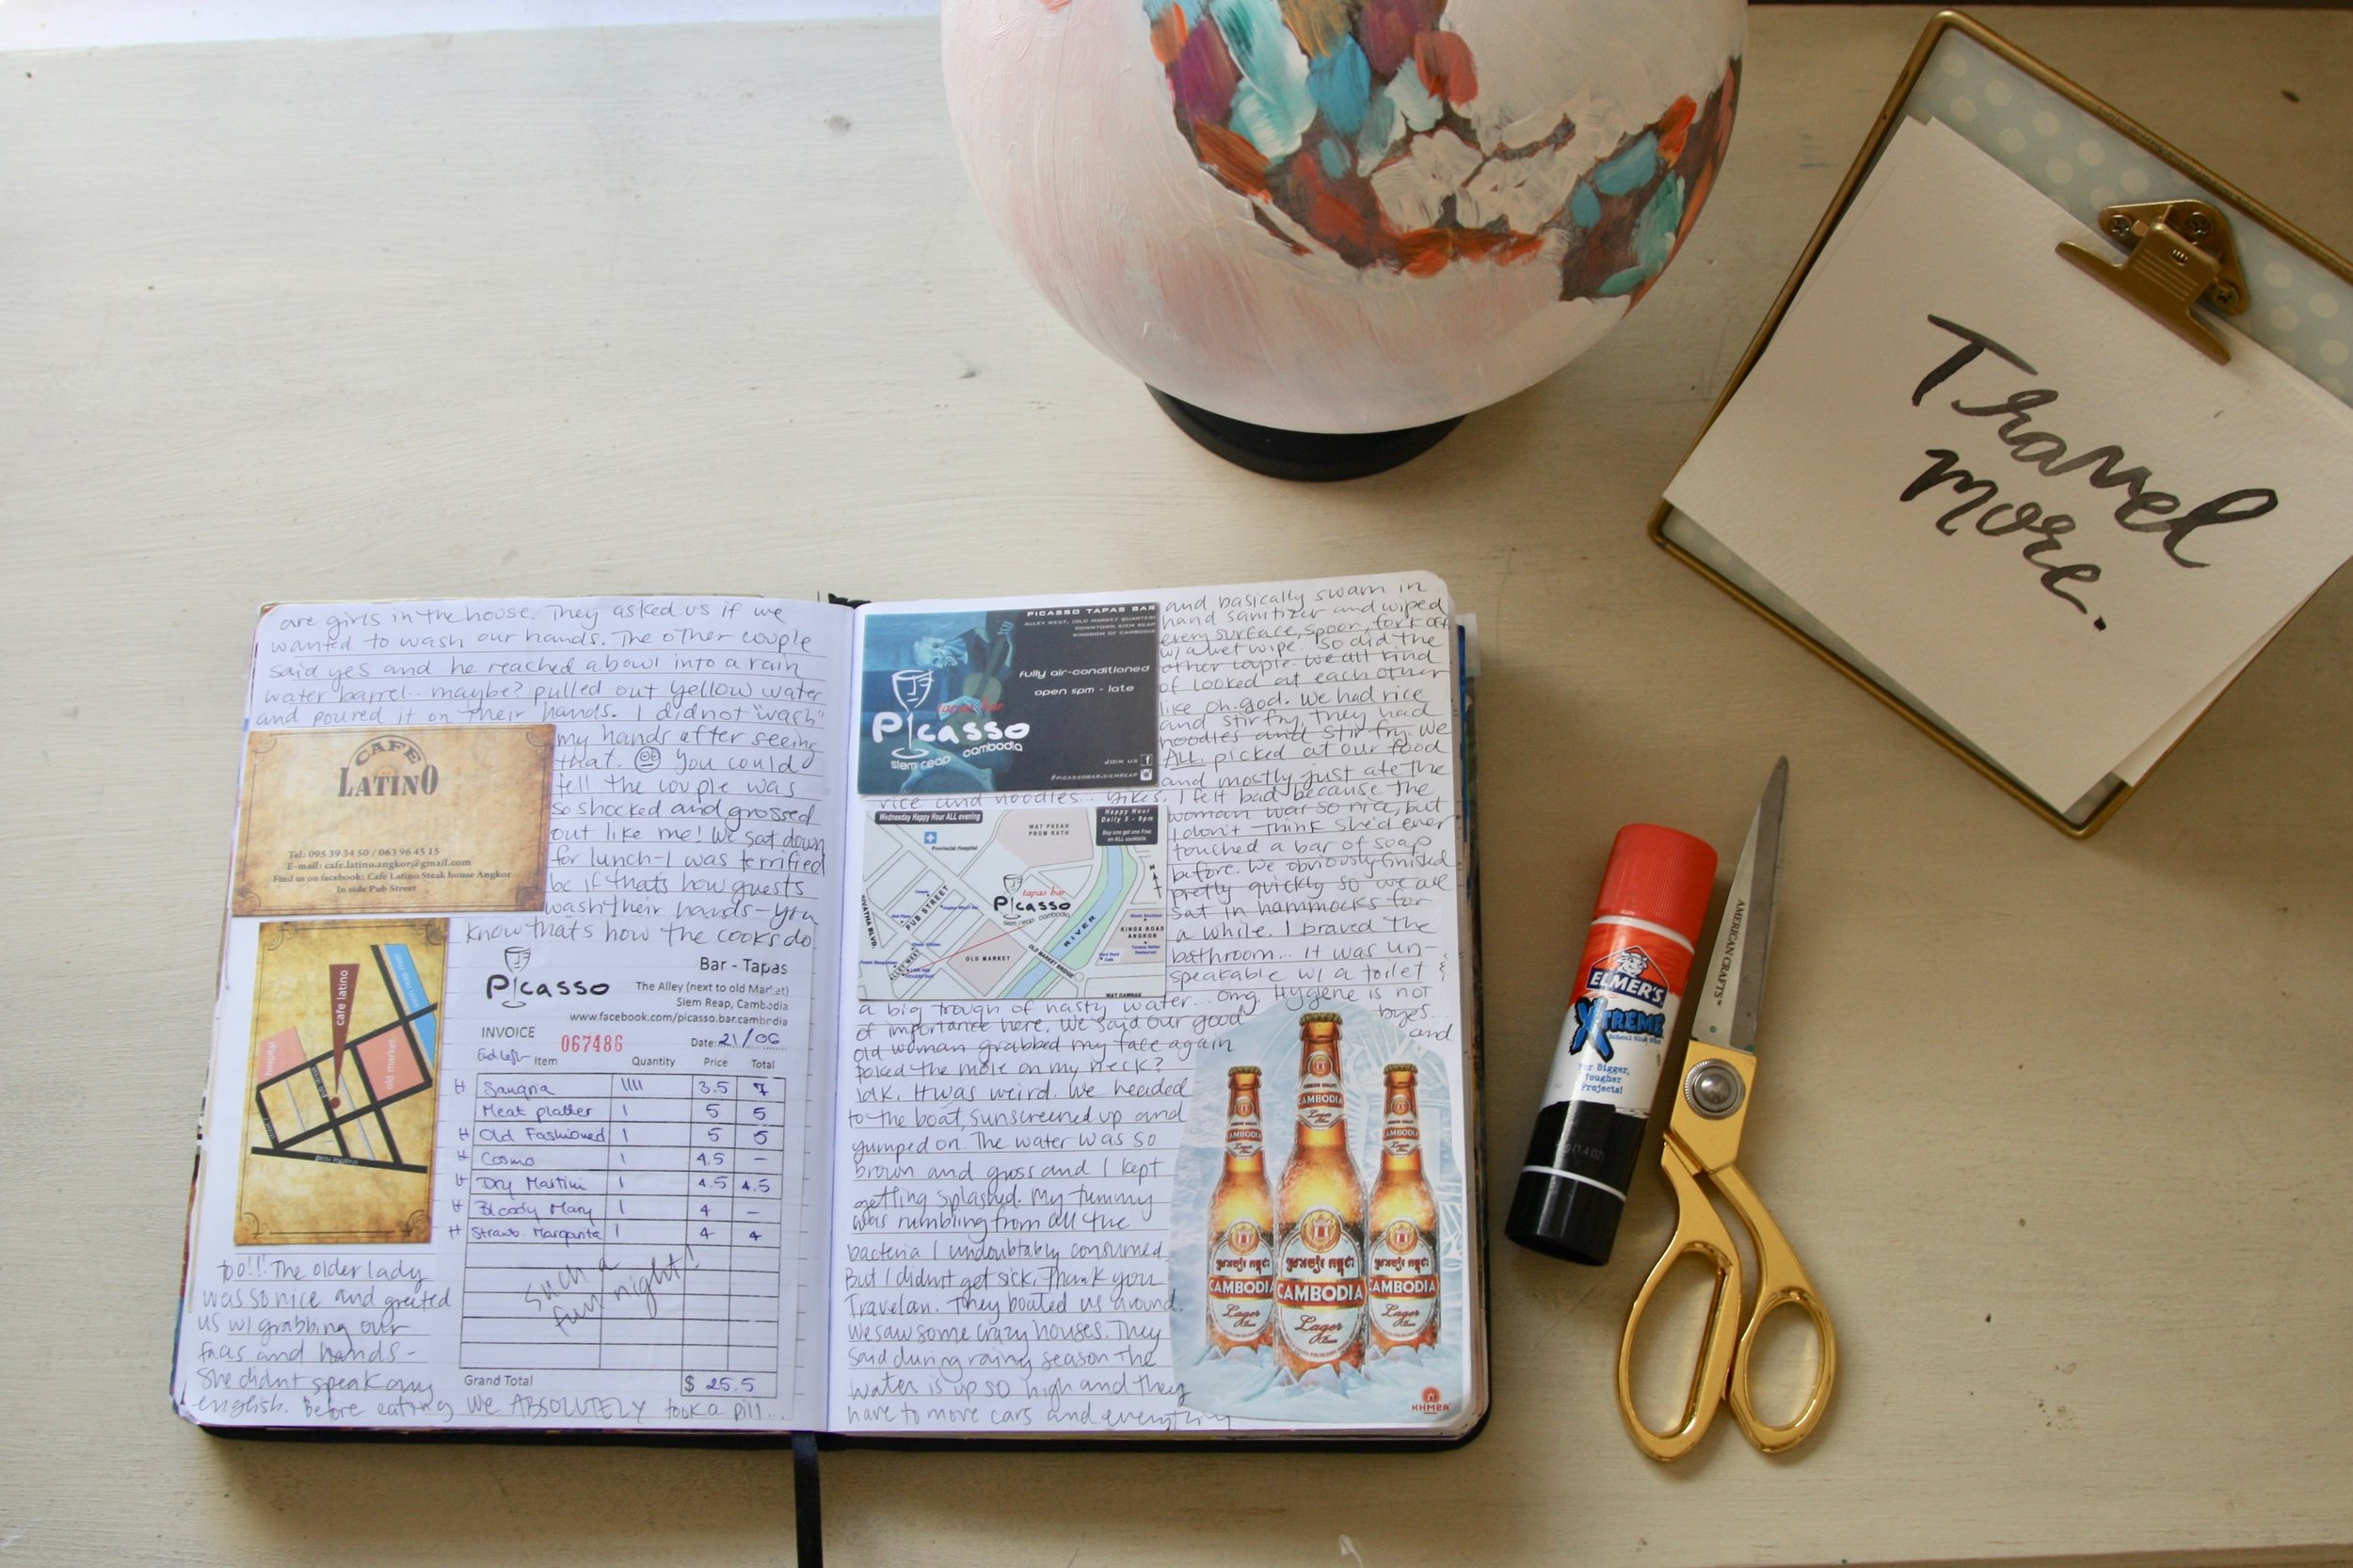 are girls in the house. They asked us if we
wanted to wash our hands. The other couple
said yes and he reached a bowl into a rain
water barrel... maybe? pulled out yellow water
and poured it on their hands. I did not "wash"
my hands after seeing
that. You could
tell the couple was
so shocked and grossed
out like me! We sat down
for lunch-I was terrified
bc if thats how guests
wash their hands-you
know thats how the cooks do
CAFE
LATINO
Tel: 095 39 34 50 / 063 96 45 15
E-mail: cafe.latino.angkor@gmail.com
Find us on facebook: Cafe Latino Steak house Angkor
In side Pub Street
cafe latino
hospital
old market
Picasso
Bar - Tapas
The Alley (next to old Market)
Siem Reap, Cambodia
www.facebook.com/picasso.bar.cambodia
INVOICE 067486 Date: 21/06
Item Quantity Price Total
H Sangria IIII 3.5 7
Meat platter 1 5 5
H Old Fashioned 1 5 5
H Cosmo 1 4.5 –
H Dry Martini 1 4.5 4.5
H Bloody Mary 1 4 –
H Strawb. Margarita 1 4 4
Such a
fun night!
Grand Total $ 25.5
too!!! The older lady
was so nice and greeted
us w/ grabbing our
faces and hands-
She didnt speak any
english. Before eating we ABSOLUTELY took a pill...
PICASSO TAPAS BAR
ALLEY WEST, (OLD MARKET QUARTER)
DOWNTOWN SIEM REAP
KINGDOM OF CAMBODIA
fully air-conditioned
open 5pm - late
tapas bar
Picasso
siem reap cambodia
JOIN US
/PICASSOBAR.SIEMREAP
and basically swam in
hand sanitizer and wiped
every surface, spoon, fork off
w/ a wet wipe. So did the
other couple. We all kind
of looked at each other
like oh.god. We had rice
and stir fry, they had
noodles and stir fry. We
ALL picked at our food
and mostly just ate the
rice and noodles... yikes. I felt bad because the
woman was so nice, but
I don't think she'd ever
touched a bar of soap
before. We obviously finished
pretty quickly so we all
sat in hammocks for
a while. I braved the
bathroom... it was un-
speakable w/ a toilet &
a big trough of nasty water... omg. Hygiene is not
of importance here. We said our good byes...
and
old woman grabbed my face again
poked the mole on my neck?
idk. It was weird. We headed
to the boat, sunscreened up and
jumped on. The water was so
brown and gross and I kept
getting splashed. My tummy
was rumbling from all the
bacteria I undoubtably consumed.
But I didnt get sick, Thank you
Travelan. They boated us around.
We saw some crazy houses. They
said during rainy season the
water is up so high and they
have to move cars and everything
Wednesday Happy Hour ALL evening
Happy Hour
Daily 5 - 9pm
Buy one get one Free
on ALL cocktails
Provincial Hospital
WAT PREAH
PROM RATH
SIVATHA BLVD.
PUB STREET
ALLEY WEST
tapas bar
Picasso
siem reap cambodia
OLD MARKET
OLD MARKET BRIDGE
RIVER
KINGS ROAD
ANGKOR
WAT DAMNAK
N
CAMBODIA
Lager
Beer
CAMBODIA
Lager
Beer
CAMBODIA
Lager
Beer
KHMER
Travel
more.
ELMER'S
XTREME
School Glue Stick
For Bigger,
Tougher
Projects!
AMERICAN CRAFTS™